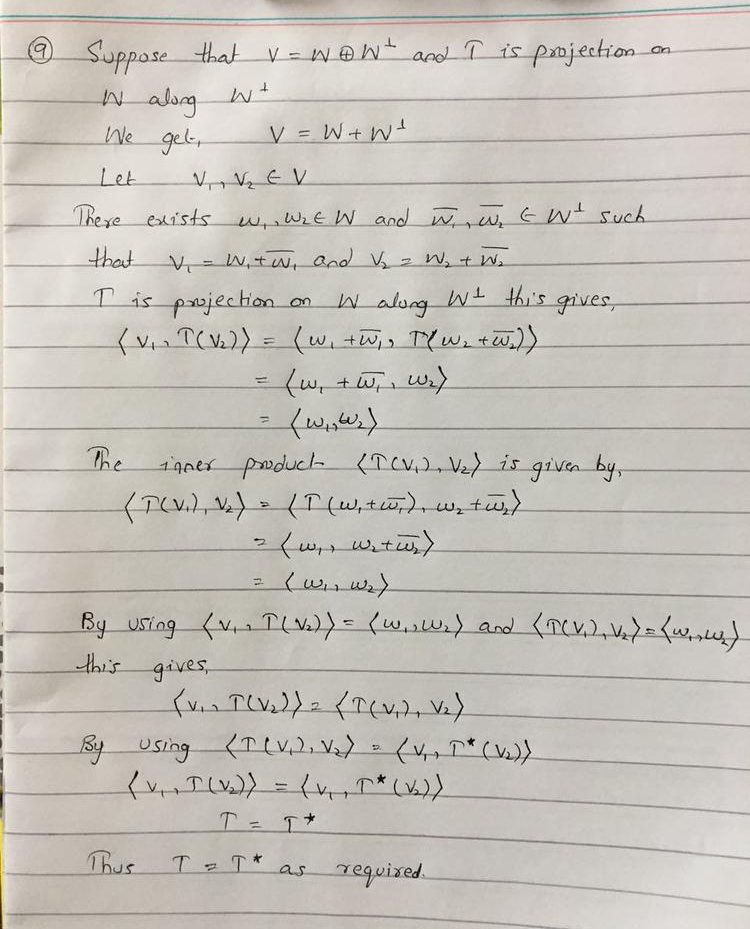 ⑨ Suppose that V = W ⊕ W⊥ and T is projection on
W along W⊥
We get, V = W + W⊥
Let V₁, V₂ ∈ V
There exists w₁, w₂ ∈ W and w̅₁, w̅₂ ∈ W⊥ such
that V₁ = w₁ + w̅₁ and V₂ = w₂ + w̅₂
T is projection on W along W⊥ this gives,
⟨V₁, T(V₂)⟩ = ⟨w₁ + w̅₁, T(w₂ + w̅₂)⟩
= ⟨w₁ + w̅₁, w₂⟩
= ⟨w₁, w₂⟩
The inner product ⟨T(V₁), V₂⟩ is given by,
⟨T(V₁), V₂⟩ = ⟨T(w₁ + w̅₁), w₂ + w̅₂⟩
= ⟨w₁, w₂ + w̅₂⟩
= ⟨w₁, w₂⟩
By using ⟨V₁, T(V₂)⟩ = ⟨w₁, w₂⟩ and ⟨T(V₁), V₂⟩ = ⟨w₁, w₂⟩
this gives,
⟨V₁, T(V₂)⟩ = ⟨T(V₁), V₂⟩
By using ⟨T(V₁), V₂⟩ = ⟨V₁, T*(V₂)⟩
⟨V₁, T(V₂)⟩ = ⟨V₁, T*(V₂)⟩
T = T*
Thus T = T* as required.